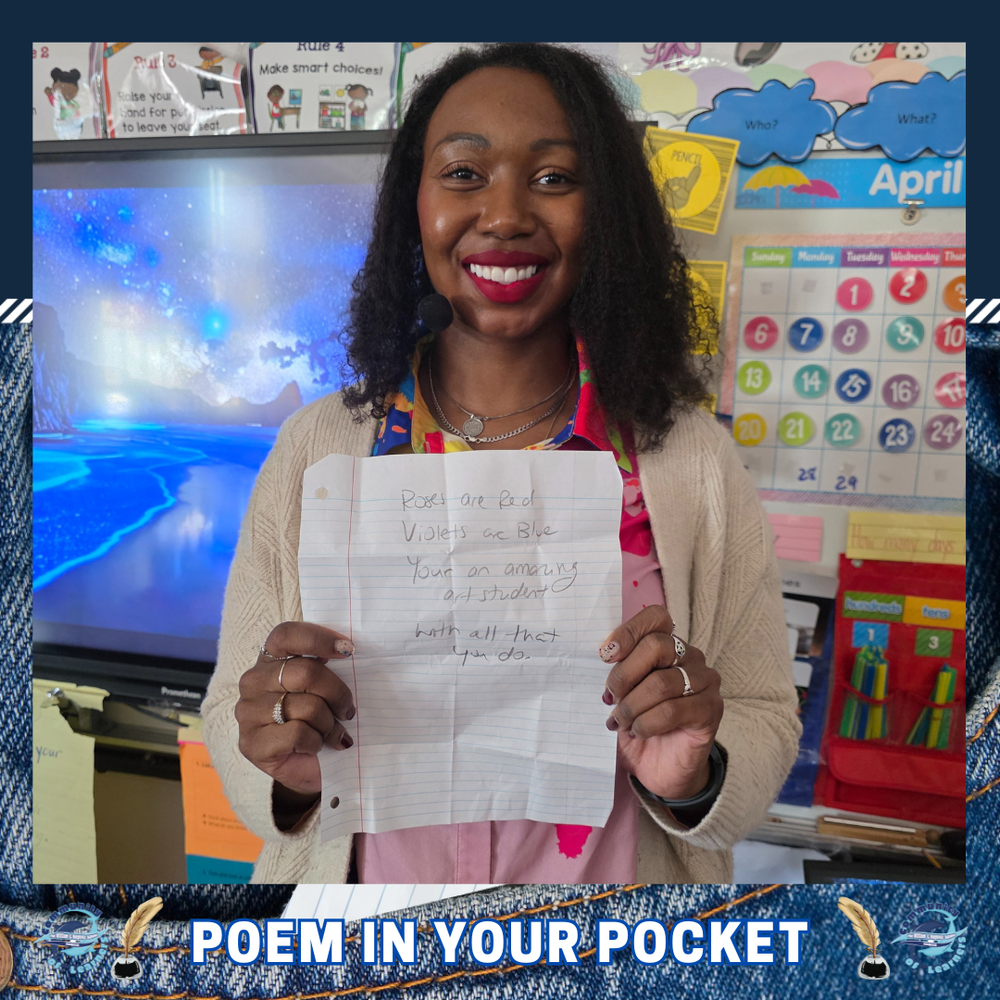 Rule 4
Make smart choices!
Rule 3
Raise your
hand for
to leave your seat.
Who?
What?
PENCIL
April
Sunday Monday Tuesday Wednesday
1 2
6 7 8 9 10
13 14 15 16 17
20 21 22 23 24
28 29
Roses are Red
Violets are Blue
Your an amazing
art student
with all that
you do.
How many days
hundreds tens
1 3
Promethean
your
POEM IN YOUR POCKET
of Learners